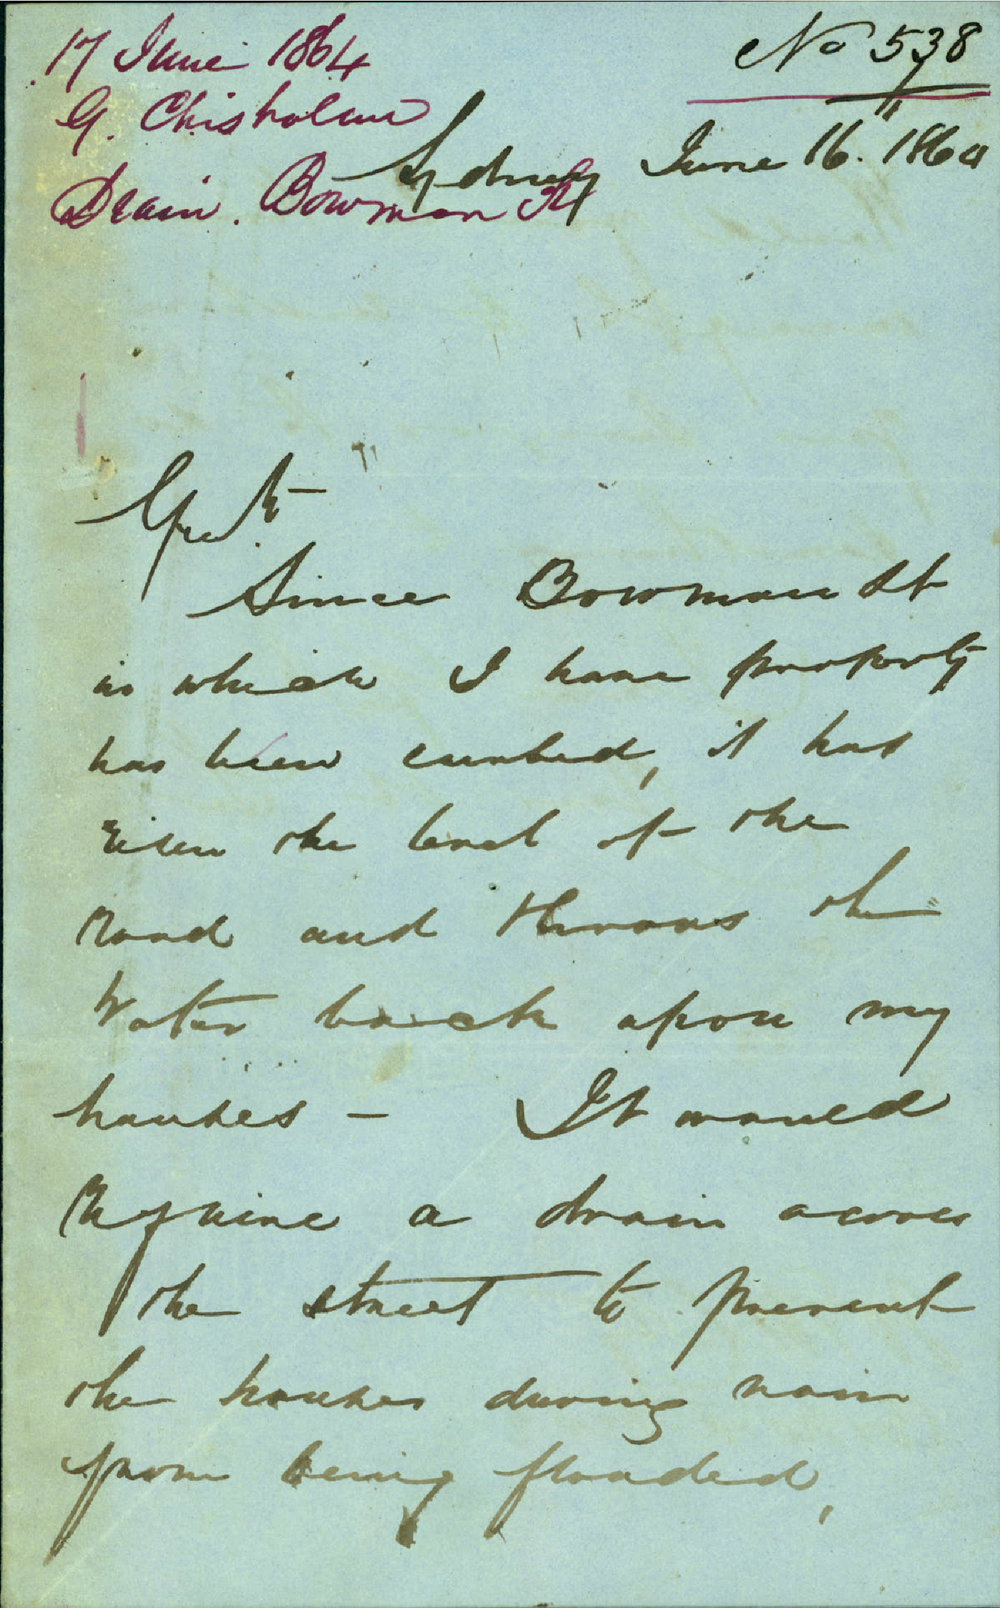 17 June 1864
G. Chisholm
Drain. Bowman St
No 538
Sydney June 16. 1864
Since Bowman St
in which I have property
has been curbed, it has
risen the level of the
road and throws the
water back upon my
houses - It would
require a drain across
the street to prevent
the houses during rain
from being flooded,